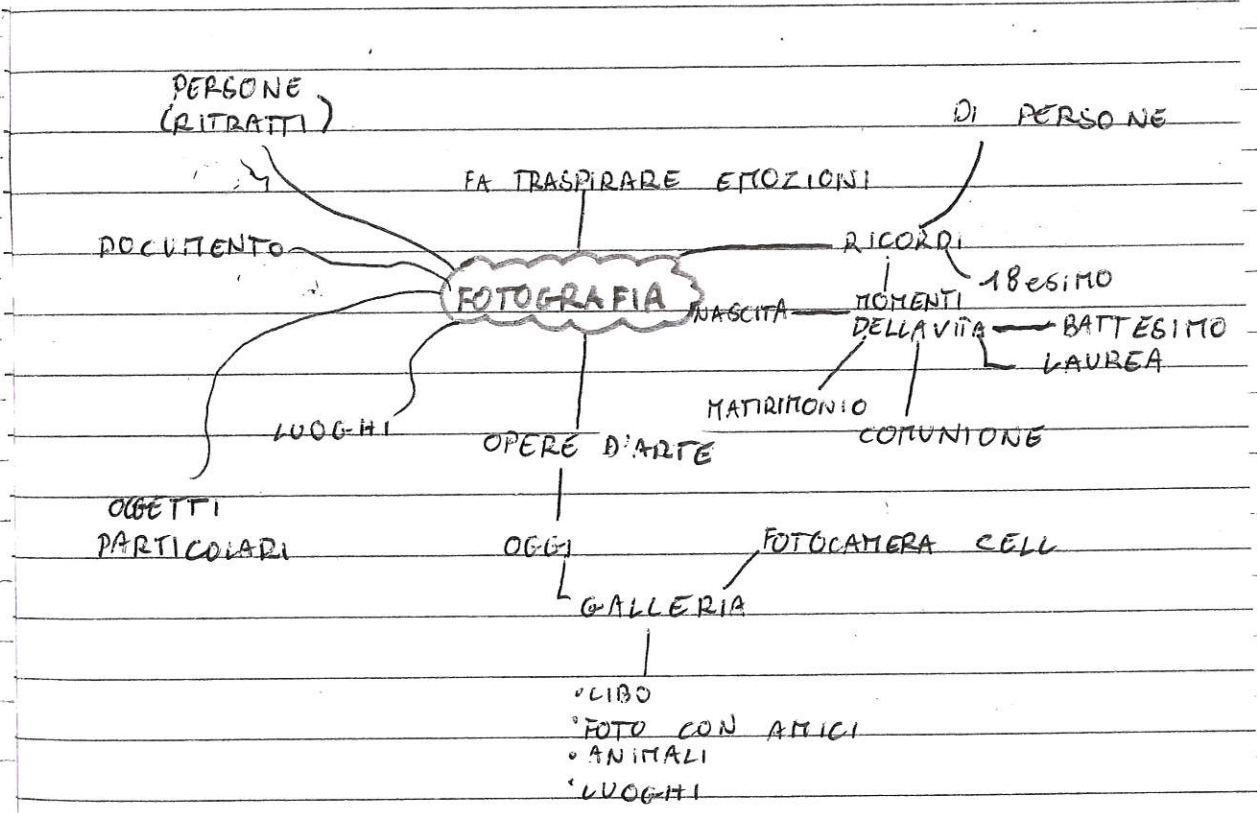 PERSONE
(RITRATTI)
DI PERSONE
FA TRASPIRARE EMOZIONI
DOCUMENTO
RICORDI
18esimo
FOTOGRAFIA
NASCITA
MOMENTI
DELLA VITA
BATTESIMO
LAUREA
MATRIMONIO
COMUNIONE
LUOGHI
OPERE D'ARTE
OGGETTI
PARTICOLARI
OGGI
FOTOCAMERA CELL
GALLERIA
• CIBO
• FOTO CON AMICI
• ANIMALI
• LUOGHI